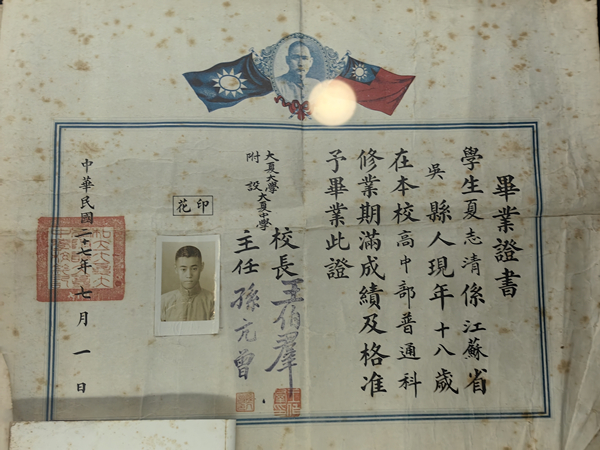 畢業證書
學生夏志清係江蘇省
吳縣人現年十八歲
在本校高中部普通科
修業期滿成績及格准
予畢業此證
大夏大學附設大夏中學
校長王伯羣
主任孫亢曾
印花
中華民國二十七年七月一日